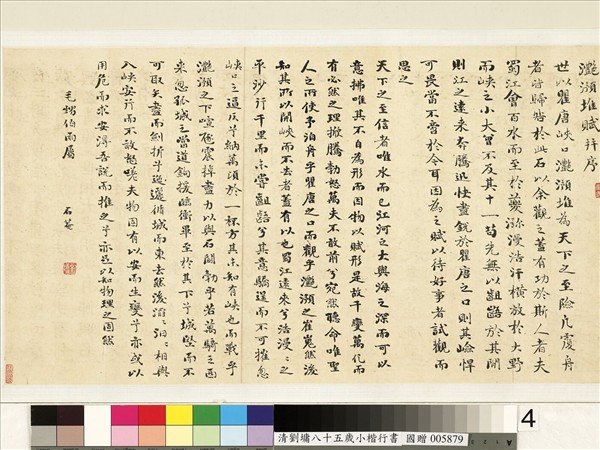 灔澦堆賦并序
世以瞿唐峽口灔澦堆為天下之至險凡覆舟
者皆歸咎於此石以余觀之蓋有功於斯人者夫
蜀江會百水而至於夔瀰漫浩汗橫放於大野
而峽之小大曾不及其十一苟先無以齟齬於其間
則江之遠來奔騰迅快盡銳於瞿唐之口則其嶮悍
可畏當不啻於今耳因為之賦以待好事者試觀而
思之
天下之至信者唯水而已江河之大與海之深而可以
意揣唯其不自為形而因物以賦形是故千變萬化而
有必然之理掀騰勃怒萬夫不敢前兮宛然聽命唯聖
人之所使予泊舟乎瞿唐之口而觀乎灔澦之崔嵬然後
知其所以開峽而不去者蓋有以也蜀江遠來兮浩漫〻之
平沙行千里而未嘗齟齬兮其意驕逞而不可摧忽
峽口之逼仄兮納萬頃於一杯方其未知有峽也而戰乎
灔澦之下喧豗震掉盡力以與石鬪勃乎若萬騎之西
來忽孤城之當道鉤援臨衝畢至於其下兮城堅而不
可取矢盡而劍折兮迤邐循城而東去然後滔〻相與
入峽安行而不敢怒嗟夫物固有以安而生變兮亦或以
用危而求安得吾說而推之兮亦足以知物理之固然
石菴
4
清劉墉八十五歲小楷行書
國贈 005879